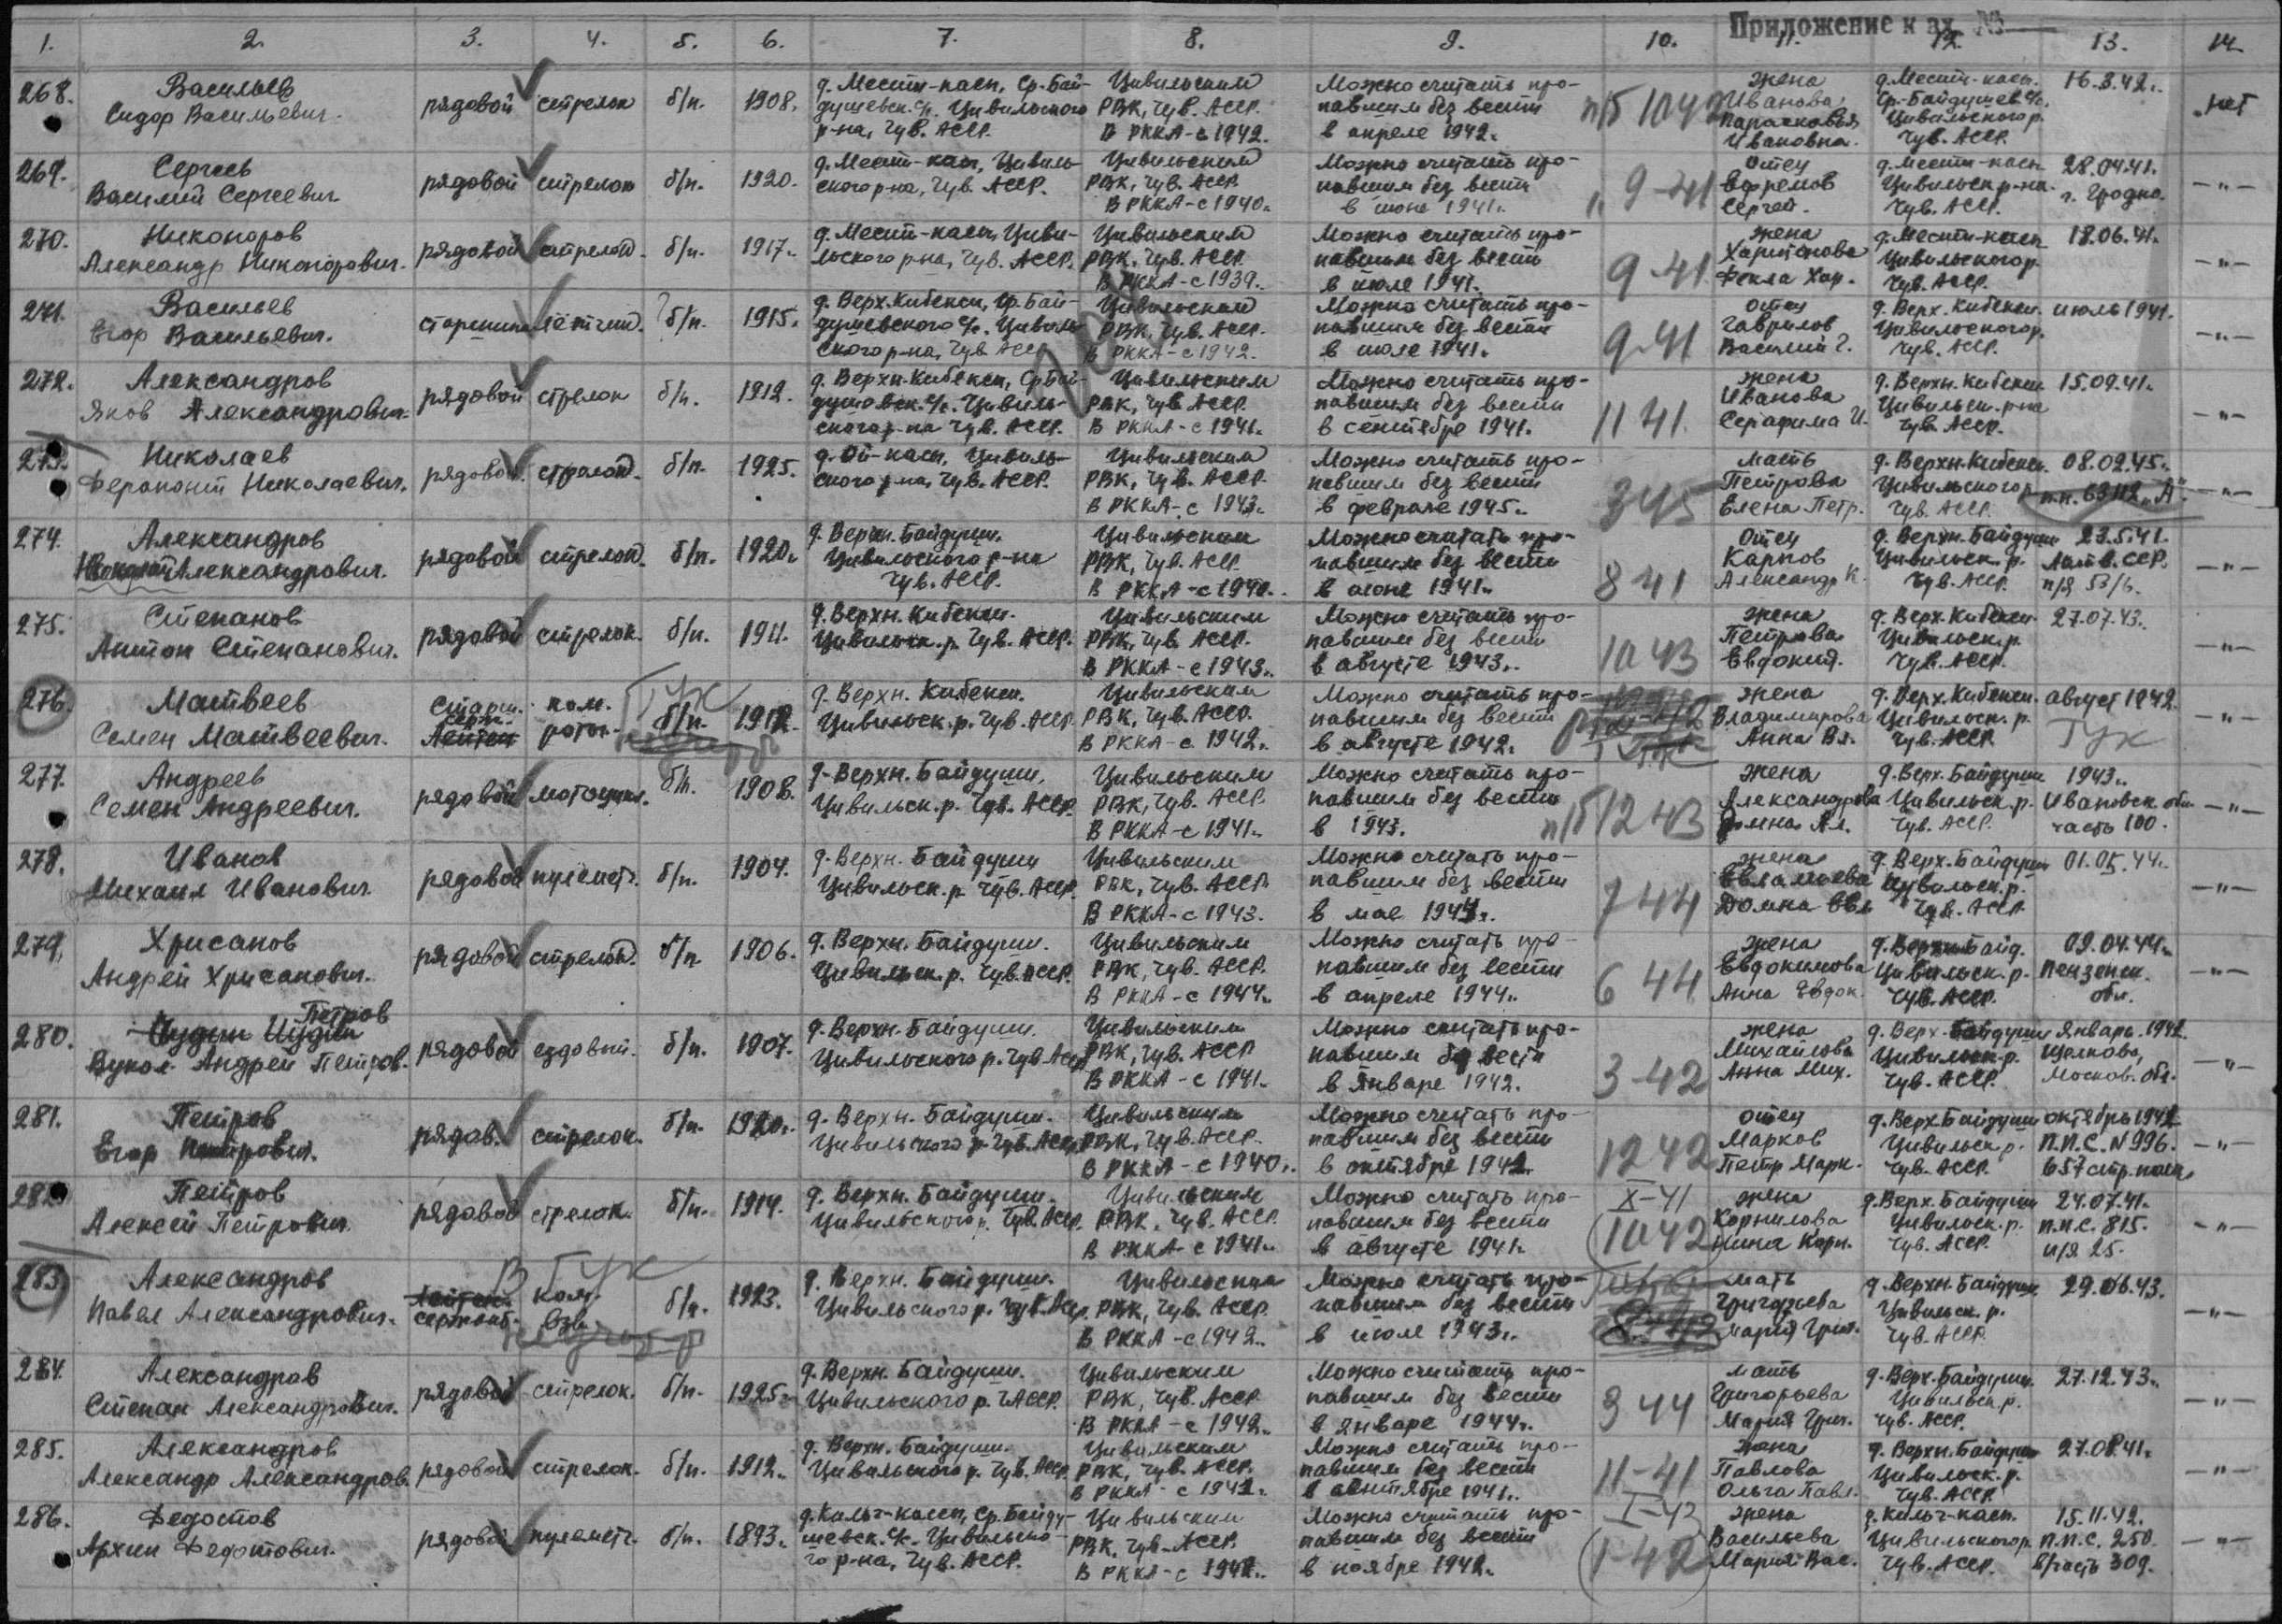 Приложение к вх. №
1. 2. 3. 4. 5. 6. 7. 8. 9. 10. 11. 12. 13. 14.
268. Васильев Сидор Васильевич. рядовой стрелок б/п. 1908. д. Мести-касы, Ср. Бай-душевск. с/с. Цивильского р-на, Чув. АССР. Цивильским РВК, Чув. АССР. В РККА-с 1942. Можно считать про-павшим без вести в апреле 1942. п/б 10 42 жена Иванова Парасковья Ивановна. д. Мести-касы. Ср-Байдушев с/с. Цивильского р. Чув. АССР. 16.3.42. нет
269. Сергеев Василий Сергеевич. рядовой стрелок б/п. 1920. д. Мести-касы, Цивиль-ского р-на, Чув. АССР. Цивильским РВК, Чув. АССР. В РККА-с 1940. Можно считать про-павшим без вести в июне 1941. 9-41 Отец Ефремов Сергей. д. Мести-касы Цивильск р-на. Чув. АССР. 28.04.41. г. Гродно. -"-
270. Никоноров Александр Никонорович. рядовой стрелок. б/п. 1917. д. Мести-касы, Циви-льского р-на, Чув. АССР. Цивильским РВК, Чув. АССР. В РККА-с 1939. Можно считать про-павшим без вести в июле 1941. 9-41 жена Харитонова Фекла Хар. д. Мести-касы Цивильского р. Чув. АССР. 18.06.41. -"-
271. Васильев Егор Васильевич. старшина лётчик. б/п. 1915. д. Верх. Кибекси, Ср. Бай-душевского с/с. Цивиль-ского р-на, Чув АССР Цивильским РВК, Чув. АССР. В РККА-с 1942. Можно считать про-павшим без вести в июле 1941. 9-41 Отец Гаврилов Василий Г. д. Верх. Кибекси. Цивильского р. Чув. АССР. июль 1941. -"-
272. Александров Яков Александрович. рядовой стрелок б/п. 1912. д. Верхн. Кибекси, Ср. Бай-душевск. с/с. Цивиль-ского р-на Чув. АССР. Цивильским РВК, Чув АССР. В РККА-с 1941. Можно считать про-павшим без вести в сентябре 1941. 11 41. жена Иванова Серафима И. д. Верхн. Кибекси Цивильск. р-на Чув. АССР. 15.09.41. -"-
273. Николаев Ферапонт Николаевич. рядовой. стрелок. б/п. 1925. д. Ой-касы, Цивиль-ского р-на, Чув. АССР. Цивильским РВК, Чув. АССР. В РККА-с 1943. Можно считать про-павшим без вести в феврале 1945. 3 45 мать Петрова Елена Петр. д. Верхн. Кибекси. Цивильского р. Чув. АССР. 08.02.45. п.п. 63112 "А". -"-
274. Александров Александрович. рядовой стрелок. б/п. 1920. д. Верхн. Байдуши. Цивильского р-на Чув. АССР. Цивильским РВК, Чув. АССР. В РККА-с 1940. Можно считать про-павшим без вести в июне 1941. 8 41 Отец Карпов Александр К. д. Верхн. Байдуши Цивильск. р. Чув. АССР. 23.5.41. Латв. ССР. п/я 53/6. -"-
275. Степанов Антон Степанович. рядовой стрелок. б/п. 1911. д. Верхн. Кибекси. Цивильск. р. Чув. АССР. Цивильским РВК, Чув АССР. В РККА-с 1943. Можно считать про-павшим без вести в августе 1943. 10 43 жена Петрова Евдокия. д. Верх. Кибекси. Цивильск. р. Чув. АССР. 27.07.43. -"-
276. Матвеев Семен Матвеевич. Старш. серж. Лейтен ком. роты. ГУК б/п. 1912. д. Верхн. Кибекси. Цивильск. р. Чув. АССР. Цивильским РВК, Чув. АССР. В РККА-с 1942. Можно считать про-павшим без вести в августе 1942. жена Владимирова Анна Вл. д. Верх. Кибекси. Цивильск. р. Чув. АССР. август 1942. ГУК -"-
277. Андреев Семен Андреевич. рядовой мотоцикл. б/п. 1908. д. Верхн. Байдуши, Цивильск. р. Чув. АССР. Цивильским РВК, Чув. АССР. В РККА-с 1941. Можно считать про-павшим без вести в 1943. п/б 12 43 жена Александрова Ал. д. Верх. Байдуши Цивильск. р. Чув. АССР. 1943. Ивановск. обл. часть 100. -"-
278. Иванов Михаил Иванович. рядовой пулеметч. б/п. 1904. д. Верхн. Байдуши Цивильск. р. Чув. АССР. Цивильским РВК, Чув. АССР. В РККА-с 1943. Можно считать про-павшим без вести в мае 1944. 7 44 жена Евлампьева Домна Евл д. Верх. Байдуши Цивильск. р. Чув. АССР. 01.05.44. -"-
279. Хрисанов Андрей Хрисанович. рядовой стрелок. б/п 1906. д. Верхн. Байдуши. Цивильск. р. Чув. АССР. Цивильским РВК, Чув. АССР. В РККА-с 1944. Можно считать про-павшим без вести в апреле 1944. 6 44 жена Евдокимова Анна Евдок. д. Верхн. Байд. Цивильск. р. Чув. АССР. 09.04.44. Пензенск. обл. -"-
280. Петров Вукол Андрей Петров. рядовой ездовый. б/п. 1907. д. Верхн. Байдуши. Цивильского р. Чув АССР Цивильским РВК, Чув. АССР. В РККА-с 1941. Можно считать про-павшим без вести в январе 1942. 3-42 жена Михайлова Анна Мих. д. Верх. Байдуши Цивильск. р. Чув. АССР. Январь. 1942. Щелково, Москов. обл. -"-
281. Петров Егор Петрович. рядов. стрелок. б/п. 1920. д. Верхн. Байдуши. Цивильского р. Чув. АССР Цивильским РВК, Чув. АССР. В РККА-с 1940. Можно считать про-павшим без вести в октябре 1942. 12 42 отец Марков Петр Марк. д. Верх. Байдуши Цивильск. р. Чув. АССР. октябрь 1942 П.П.С. N 996. 657 стр. полк -"-
282. Петров Алексей Петрович. рядовой стрелок. б/п. 1914. д. Верхн. Байдуши. Цивильского р. Чув. АССР. Цивильским РВК, Чув. АССР. В РККА-с 1941. Можно считать про-павшим без вести в августе 1941. X-41 10 42 жена Корнилова Нина Корн. д. Верх. Байдуши Цивильск. р. Чув. АССР. 24.07.41. п.п.с. 815. п/я 25. -"-
283. Александров Павел Александрович. Лейтен. сержант. В ГУК Ком. взв. б/п. 1923. д. Верхн. Байдуши. Цивильского р. Чув. АССР. Цивильским РВК, Чув. АССР. В РККА-с 1942. Можно считать про-павшим без вести в июле 1943. мать Григорьева Мария Григ. д. Верхн. Байдуши Цивильск. р. Чув. АССР. 29.06.43. -"-
284. Александров Степан Александрович. рядовой стрелок. б/п. 1925. д. Верхн. Байдуши. Цивильского р. ЧАССР. Цивильским РВК, Чув. АССР В РККА-с 1942. Можно считать про-павшим без вести в январе 1944. 3 44 мать Григорьева Мария Григ. д. Верх. Байдуши. Цивильск. р. Чув. АССР. 27.12.43. -"-
285. Александров Александр Александров. рядовой стрелок. б/п. 1912. д. Верхн. Байдуши. Цивильского р. Чув. АССР. Цивильским РВК, Чув. АССР. В РККА-с 1941. Можно считать про-павшим без вести в сентябре 1941. 11-41 жена Павлова Ольга Павл. д. Верхн. Байдуши Цивильск. р. Чув. АССР. 27.08.41. -"-
286. Федотов Архип Федотович. рядовой пулеметч. б/п. 1893. д. Кильч-касы, Ср. Байду-шевск. с/с. Цивильско-го р-на, Чув. АССР. Цивильским РВК, Чув. АССР. В РККА-с 1942. Можно считать про-павшим без вести в ноябре 1942. I-43 1-42 жена Васильева Мария Вас. д. Кильч-касы. Цивильского р. Чув. АССР. 15.11.42. п.п.с. 250. в/часть 309. -"-